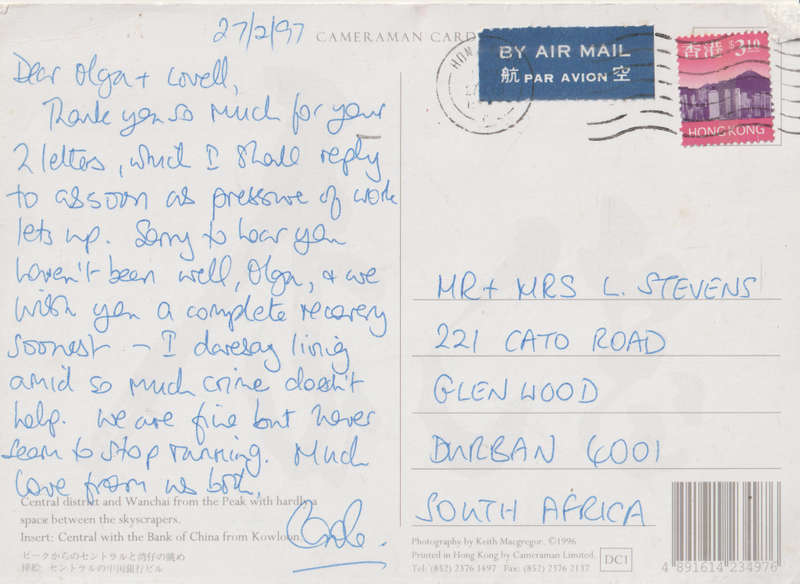 27/2/97
CAMERAMAN CARD
BY AIR MAIL
航 PAR AVION 空
香港 $3.10
HONG KONG
Dear Olga + Lovell,
Thank you so much for your
2 letters, which I shall reply
to as soon as pressure of work
lets up. Sorry to hear you
haven't been well, Olga, & we
wish you a complete recovery
soonest – I daresay living
amid so much crime doesn't
help. We are fine but never
seem to stop running. Much
love from us both,
MR + MRS L. STEVENS
221 CATO ROAD
GLENWOOD
DURBAN 4001
SOUTH AFRICA
Central district and Wanchai from the Peak with hardly a
space between the skyscrapers.
Insert: Central with the Bank of China from Kowloon.
ピークからのセントラルと湾仔の眺め
挿絵: セントラルの中国銀行ビル
Photography by Keith Macgregor. ©1996
Printed in Hong Kong by Cameraman Limited.
Tel: (852) 2376 1497 Fax: (852) 2376 2137
DC1
4 891614 234976